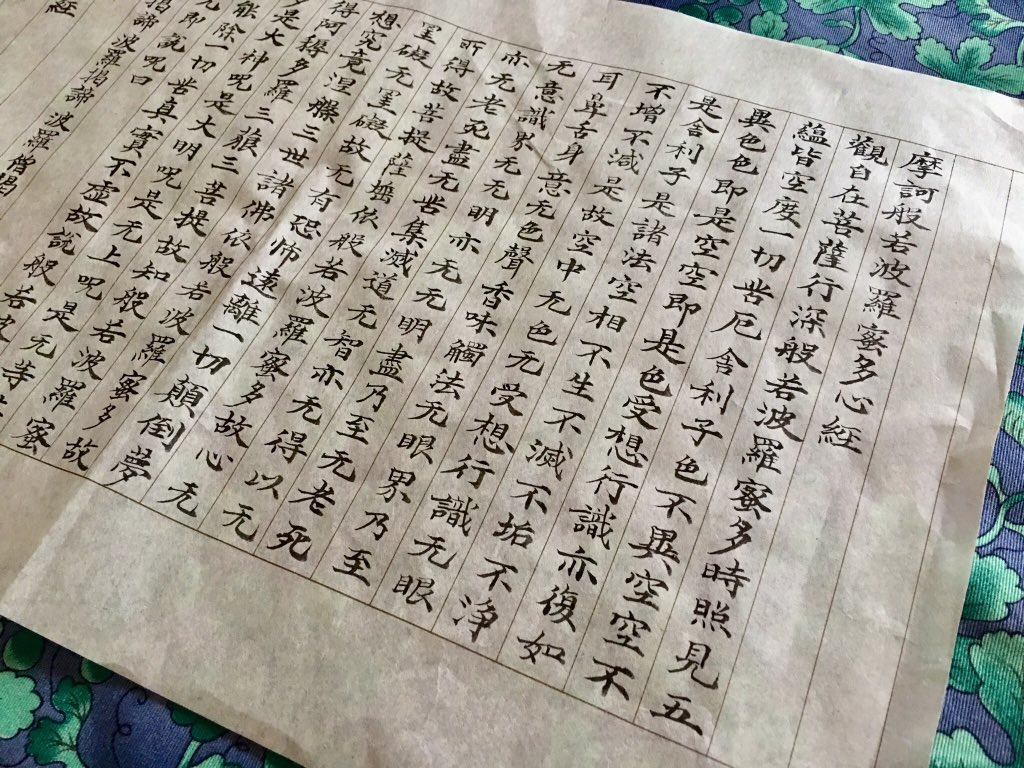 摩訶般若波羅蜜多心経
觀自在菩薩行深般若波羅蜜多時照見五
蘊皆空度一切苦厄舍利子色不異空空不
異色色即是空空即是色受想行識亦復如
是舍利子是諸法空相不生不滅不垢不淨
不增不減是故空中无色无受想行識无眼
耳鼻舌身意无色聲香味觸法无眼界乃至
无意識界无无明亦无无明盡乃至无老死
亦无老死盡无苦集滅道无智亦无得以无
所得故菩提薩埵依般若波羅蜜多故心无
罣礙无罣礙故无有恐怖遠離一切顛倒夢
想究竟涅槃三世諸佛依般若波羅蜜多故
得阿耨多羅三藐三菩提故知般若波羅蜜
多是大神呪是大明呪是无上呪是无等
能除一切苦真實不虛故說般若波
即說呪曰
揭諦 波羅揭諦 波羅僧揭
経